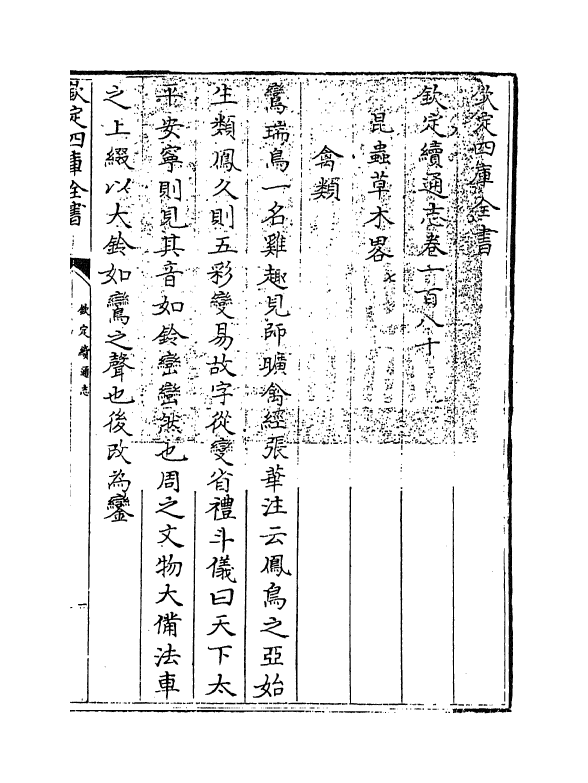 欽定四庫全書
欽定續通志卷一百八十
昆蟲草木畧
禽類
鸞瑞鳥一名雞趣見師曠禽經張華注云鳳鳥之亞始
生類鳳久則五彩變易故字從變省禮斗儀曰天下太
平安寧則見其音如鈴巒巒然也周之文物大備法車
之上綴以大鈴如鸞之聲也後改為鑾
欽定四庫全書
欽定續通志
一